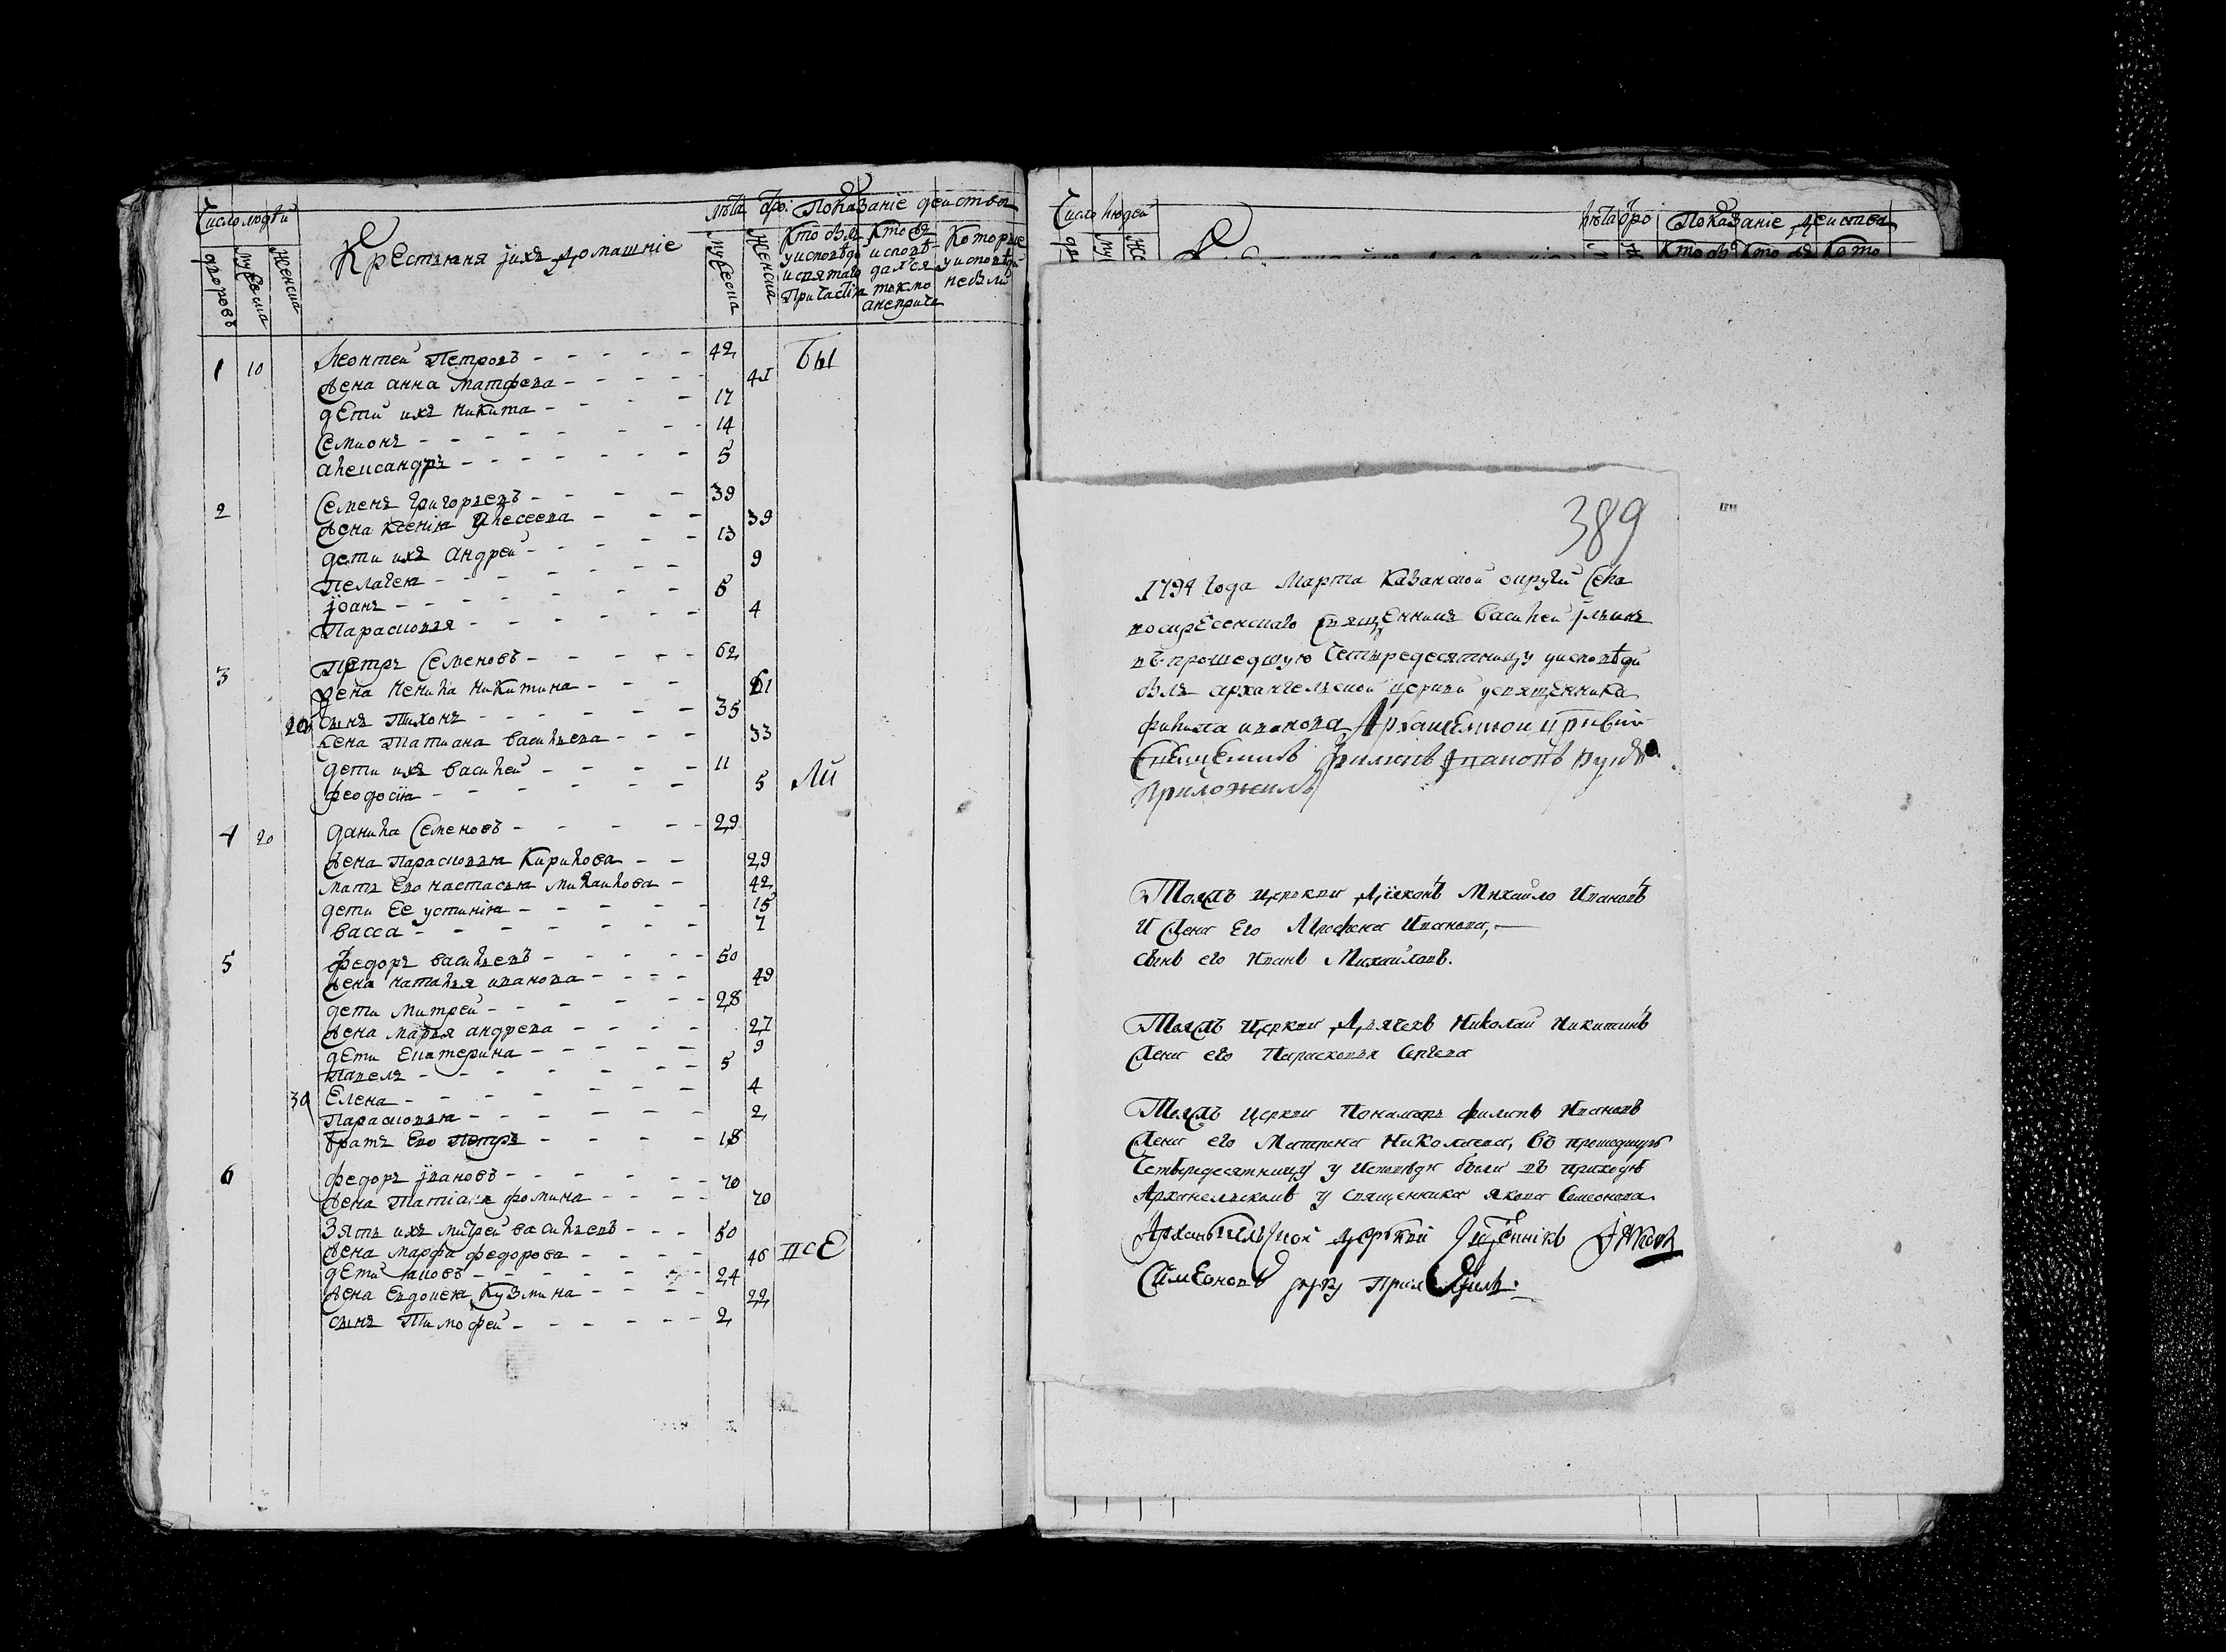 Число людей
дворовъ
мужеска
женска
Крестьяня ихъ домашніе
лѣта
мужеска
женска
Показаніе действа
Кто былъ у исповѣди и святаго причастія
Кто исповѣдался токмо а не прича
Которые у исповѣди не были
1 10 Леонтей Петровъ - - - - - 42 Бы
жена анна матфева - - - - 41
дети ихъ никита - - - - 17
Семионъ - - - - - - - 14
александръ - - - - - - - 5
2 Семенъ григорьевъ - - - - 39
жена ксенiя - - - 39
дети ихъ андрей - - - - - 13
Пелагея - - - - - - 9
jоанъ - - - - - - 5
Парасковья - - - - - - 4
3 Петръ Семеновъ - - - - - 62
жена ненила никитина - - - 61
20 сынъ Тихонъ - - - - - - 35
жена Татиана васильева - - - 33
дети ихъ василей - - - - - 11
феодосiя - - - - - - - 5 Ли
4 20 данила Семеновъ - - - - - 29
жена парасковья Кирилова - - 29
мать Ево настасья михаилова - 42
дети Ее устинiя - - - - - - 15
васса - - - - - - - 7
5 федоръ васильевъ - - - - - 50
жена наталья иванова - - - - 49
дети митрей - - - - - 28
жена марья андрева - - - - 27
дети Екатерина - - - - - - 9
павелъ - - - - - - - 5
30 Елена - - - - - - - 4
Парасковья - - - - - - 2
братъ Ево петръ - - - - - 18
6 федоръ jвановъ - - - - - - 70
жена Татiана фомина - - - - 70
Зять ихъ митрей васильевъ - - - 50
жена марфа федорова - - - - 46 ПСЕ
дети яковъ - - - - - - 24
жена Евдокея Кузмина - - - - 22
сынъ Тимофей - - - - - - 2
Число людей
лѣта
Показаніе действа
389
1794 года Марта Казанской округи Села
воскресенскаго священникъ василей jльинъ
въ прошедшую Четыредесятницу у исповѣди
былъ архангельской церкви у священника
филипа иванова Архангелской церкви
Священникъ Филипъ Ивановъ руку
Приложилъ
Тояжъ церкви Дiяконъ Михайло Ивановъ
и жена Его Агрофена Иванова,—
сынъ его Иванъ Михайловъ.
Тояжъ церкви Дьячекъ Николай Никитинъ
жена его Парасковья Сергева
Тояжъ церкви Пономарь филипъ Ивановъ
жена его Матрена Николаева, въ прошедшую
Четыредесятницу у исповѣди были въ приходѣ
Архангельскомъ у священника якова Симеонова.
Архангельской церкви Священнікъ Iяковъ
Симеоновъ руку приложилъ.